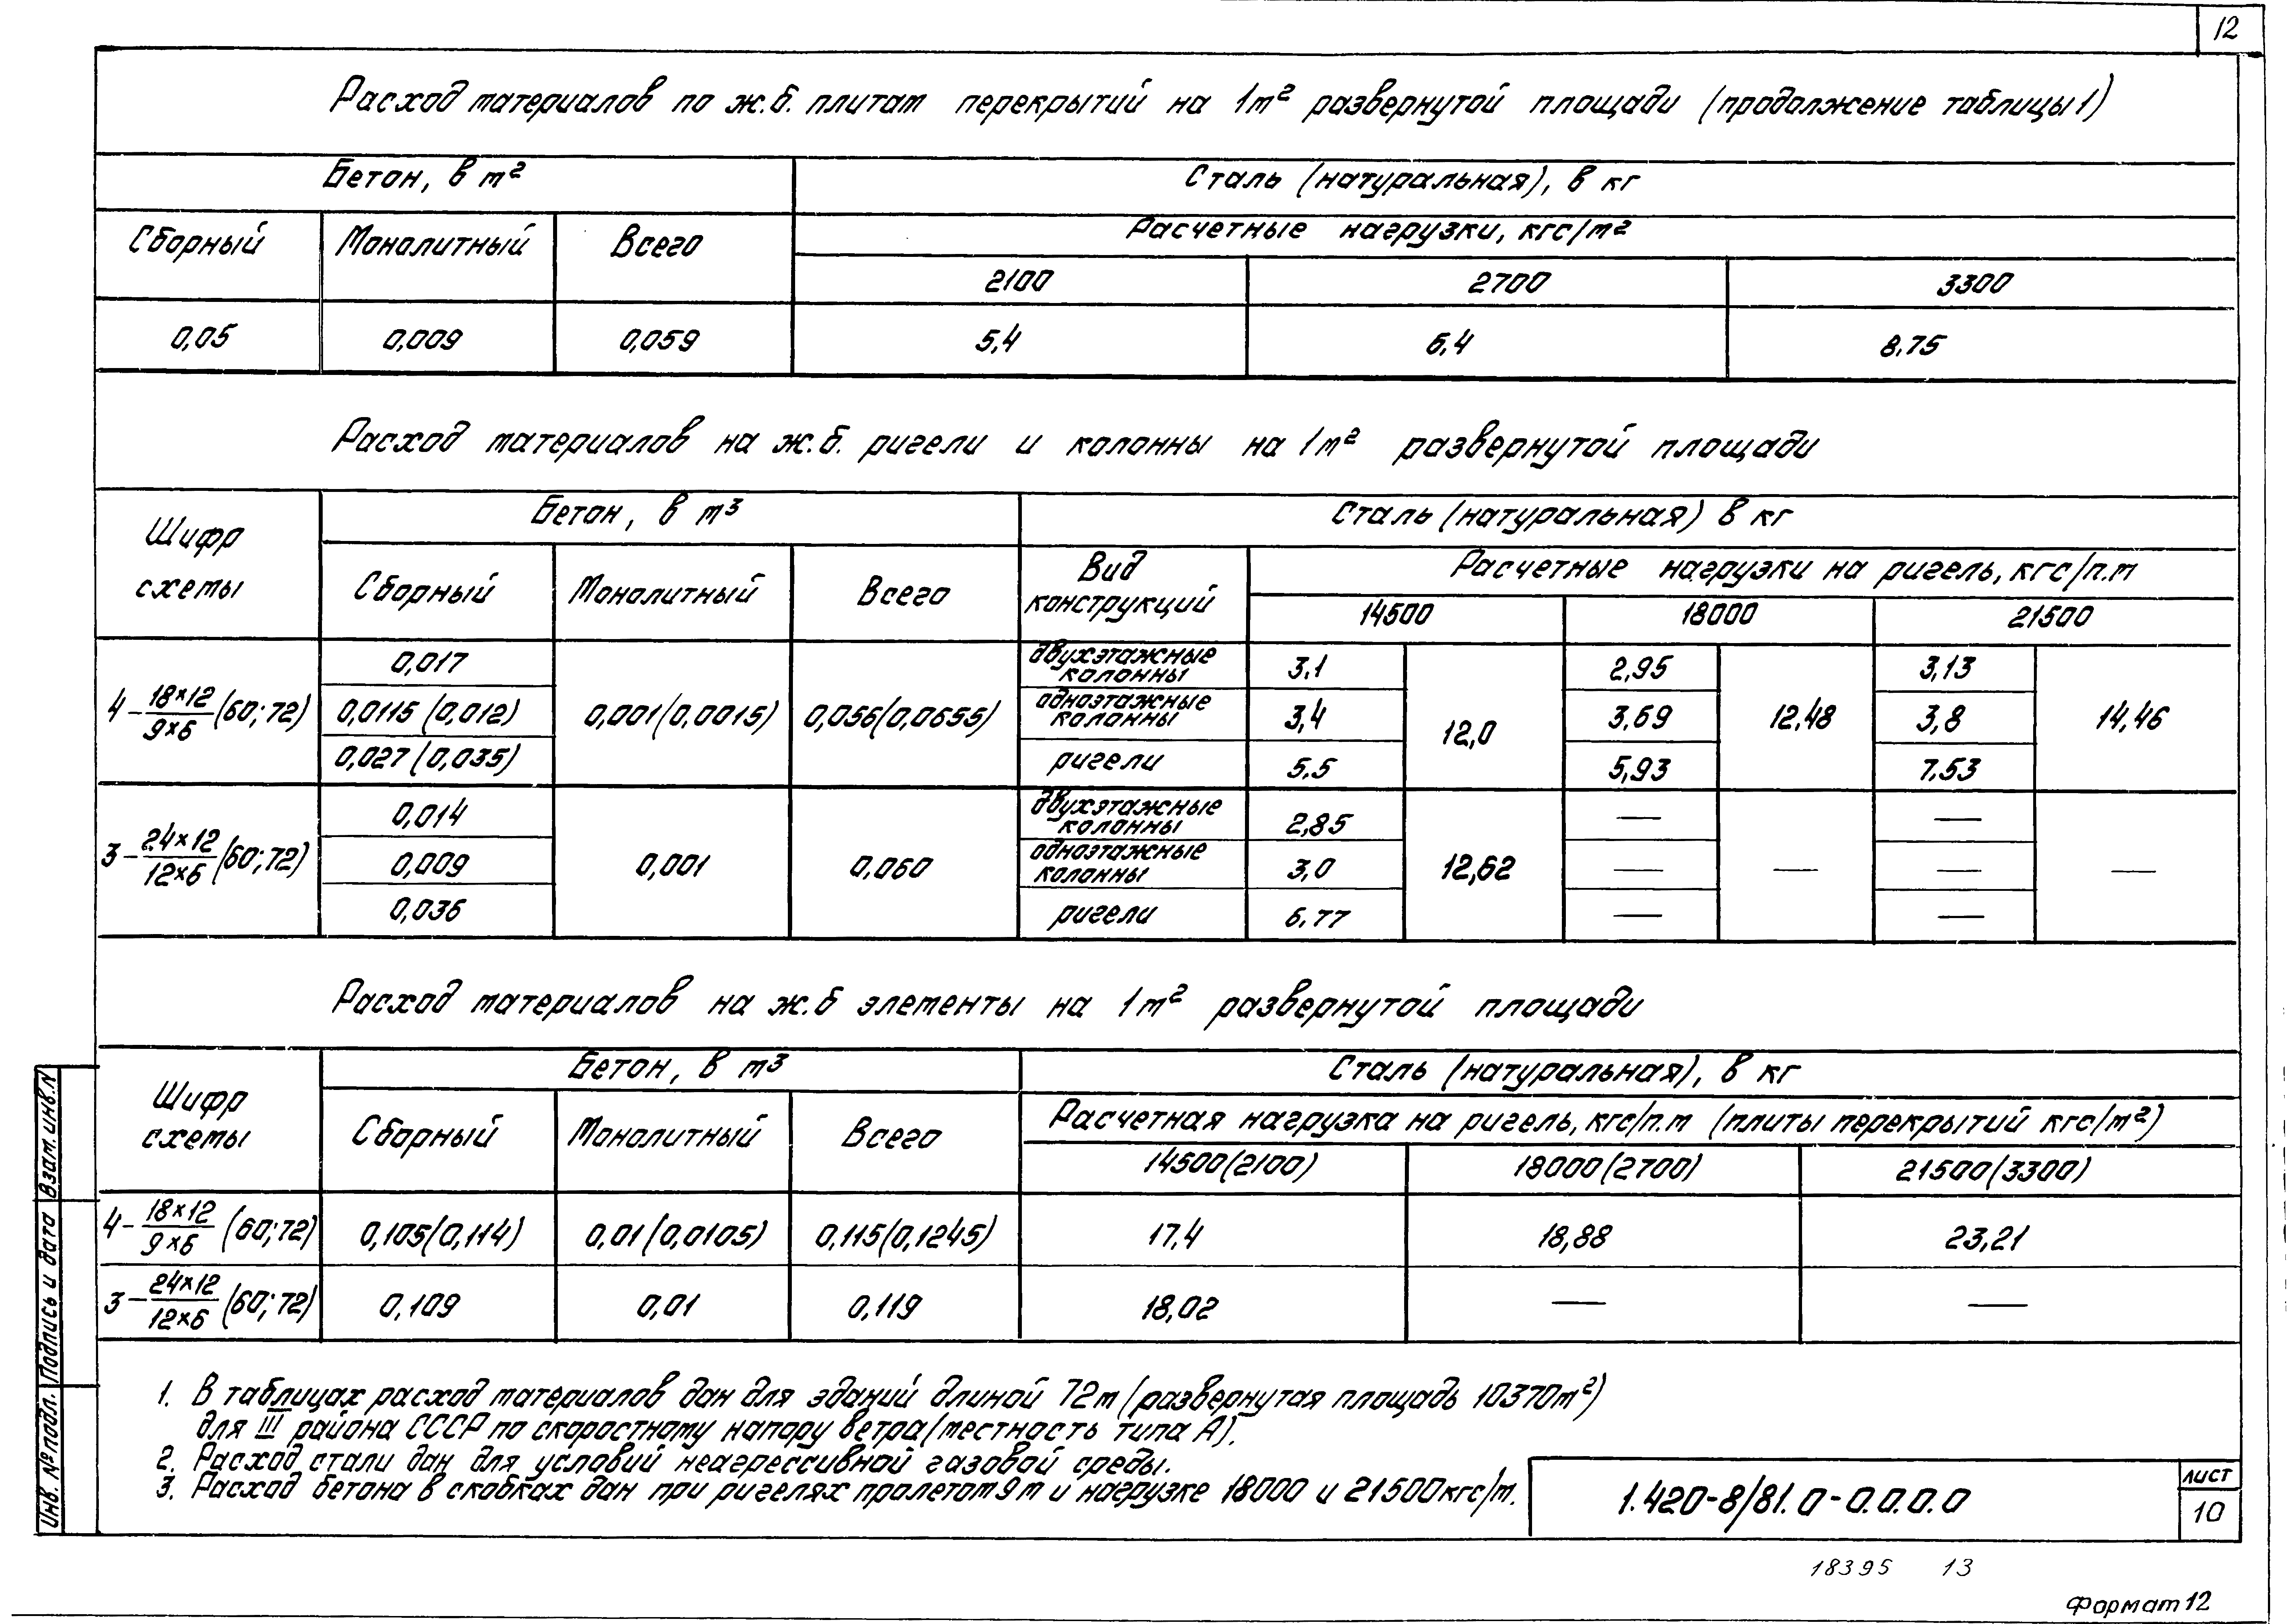 12
Расход материалов по ж.б. плитам перекрытий на 1м² развернутой площади (продолжение таблицы 1)
Бетон, в м²
Сталь (натуральная), в кг
Сборный
Монолитный
Всего
Расчетные нагрузки, кгс/м²
2100
2700
3300
0,05
0,009
0,059
5,4
6,4
8,75
Расход материалов на ж.б. ригели и колонны на 1м² развернутой площади
Шифр схемы
Бетон, в м³
Сталь (натуральная) в кг
Сборный
Монолитный
Всего
Вид конструкций
Расчетные нагрузки на ригель, кгс/п.м
14500
18000
21500
4-18×12/9×6 (60; 72)
0,017
0,0115 (0,012)
0,027 (0,035)
0,001(0,0015)
0,056(0,0655)
двухэтажные колонны
3,1
2,95
3,13
одноэтажные колонны
3,4
12,0
3,69
12,48
3,8
14,46
ригели
5,5
5,93
7,53
3-24×12/12×6 (60; 72)
0,014
0,009
0,036
0,001
0,060
двухэтажные колонны
2,85
—
—
одноэтажные колонны
3,0
12,62
—
—
—
—
ригели
6,77
—
—
Расход материалов на ж.б элементы на 1м² развернутой площади
Шифр схемы
Бетон, в м³
Сталь (натуральная), в кг
Сборный
Монолитный
Всего
Расчетная нагрузка на ригель, кгс/п.м (плиты перекрытий кгс/м²)
14500(2100)
18000(2700)
21500(3300)
4-18×12/9×6 (60; 72)
0,105(0,114)
0,01(0,0105)
0,115(0,1245)
17,4
18,88
23,21
3-24×12/12×6 (60; 72)
0,109
0,01
0,119
18,02
—
—
1. В таблицах расход материалов дан для зданий длиной 72м (развернутая площадь 10370м²)
для III района СССР по скоростному напору ветра (местность типа А).
2. Расход стали дан для условий неагрессивной газовой среды.
3. Расход бетона в скобках дан при ригелях пролетом 9м и нагрузке 18000 и 21500кгс/м.
1.420-8/81.0-0.0.0.0
лист
10
Инв. № подл. Подпись и дата Взам.инв.N
18395 13
Формат 12